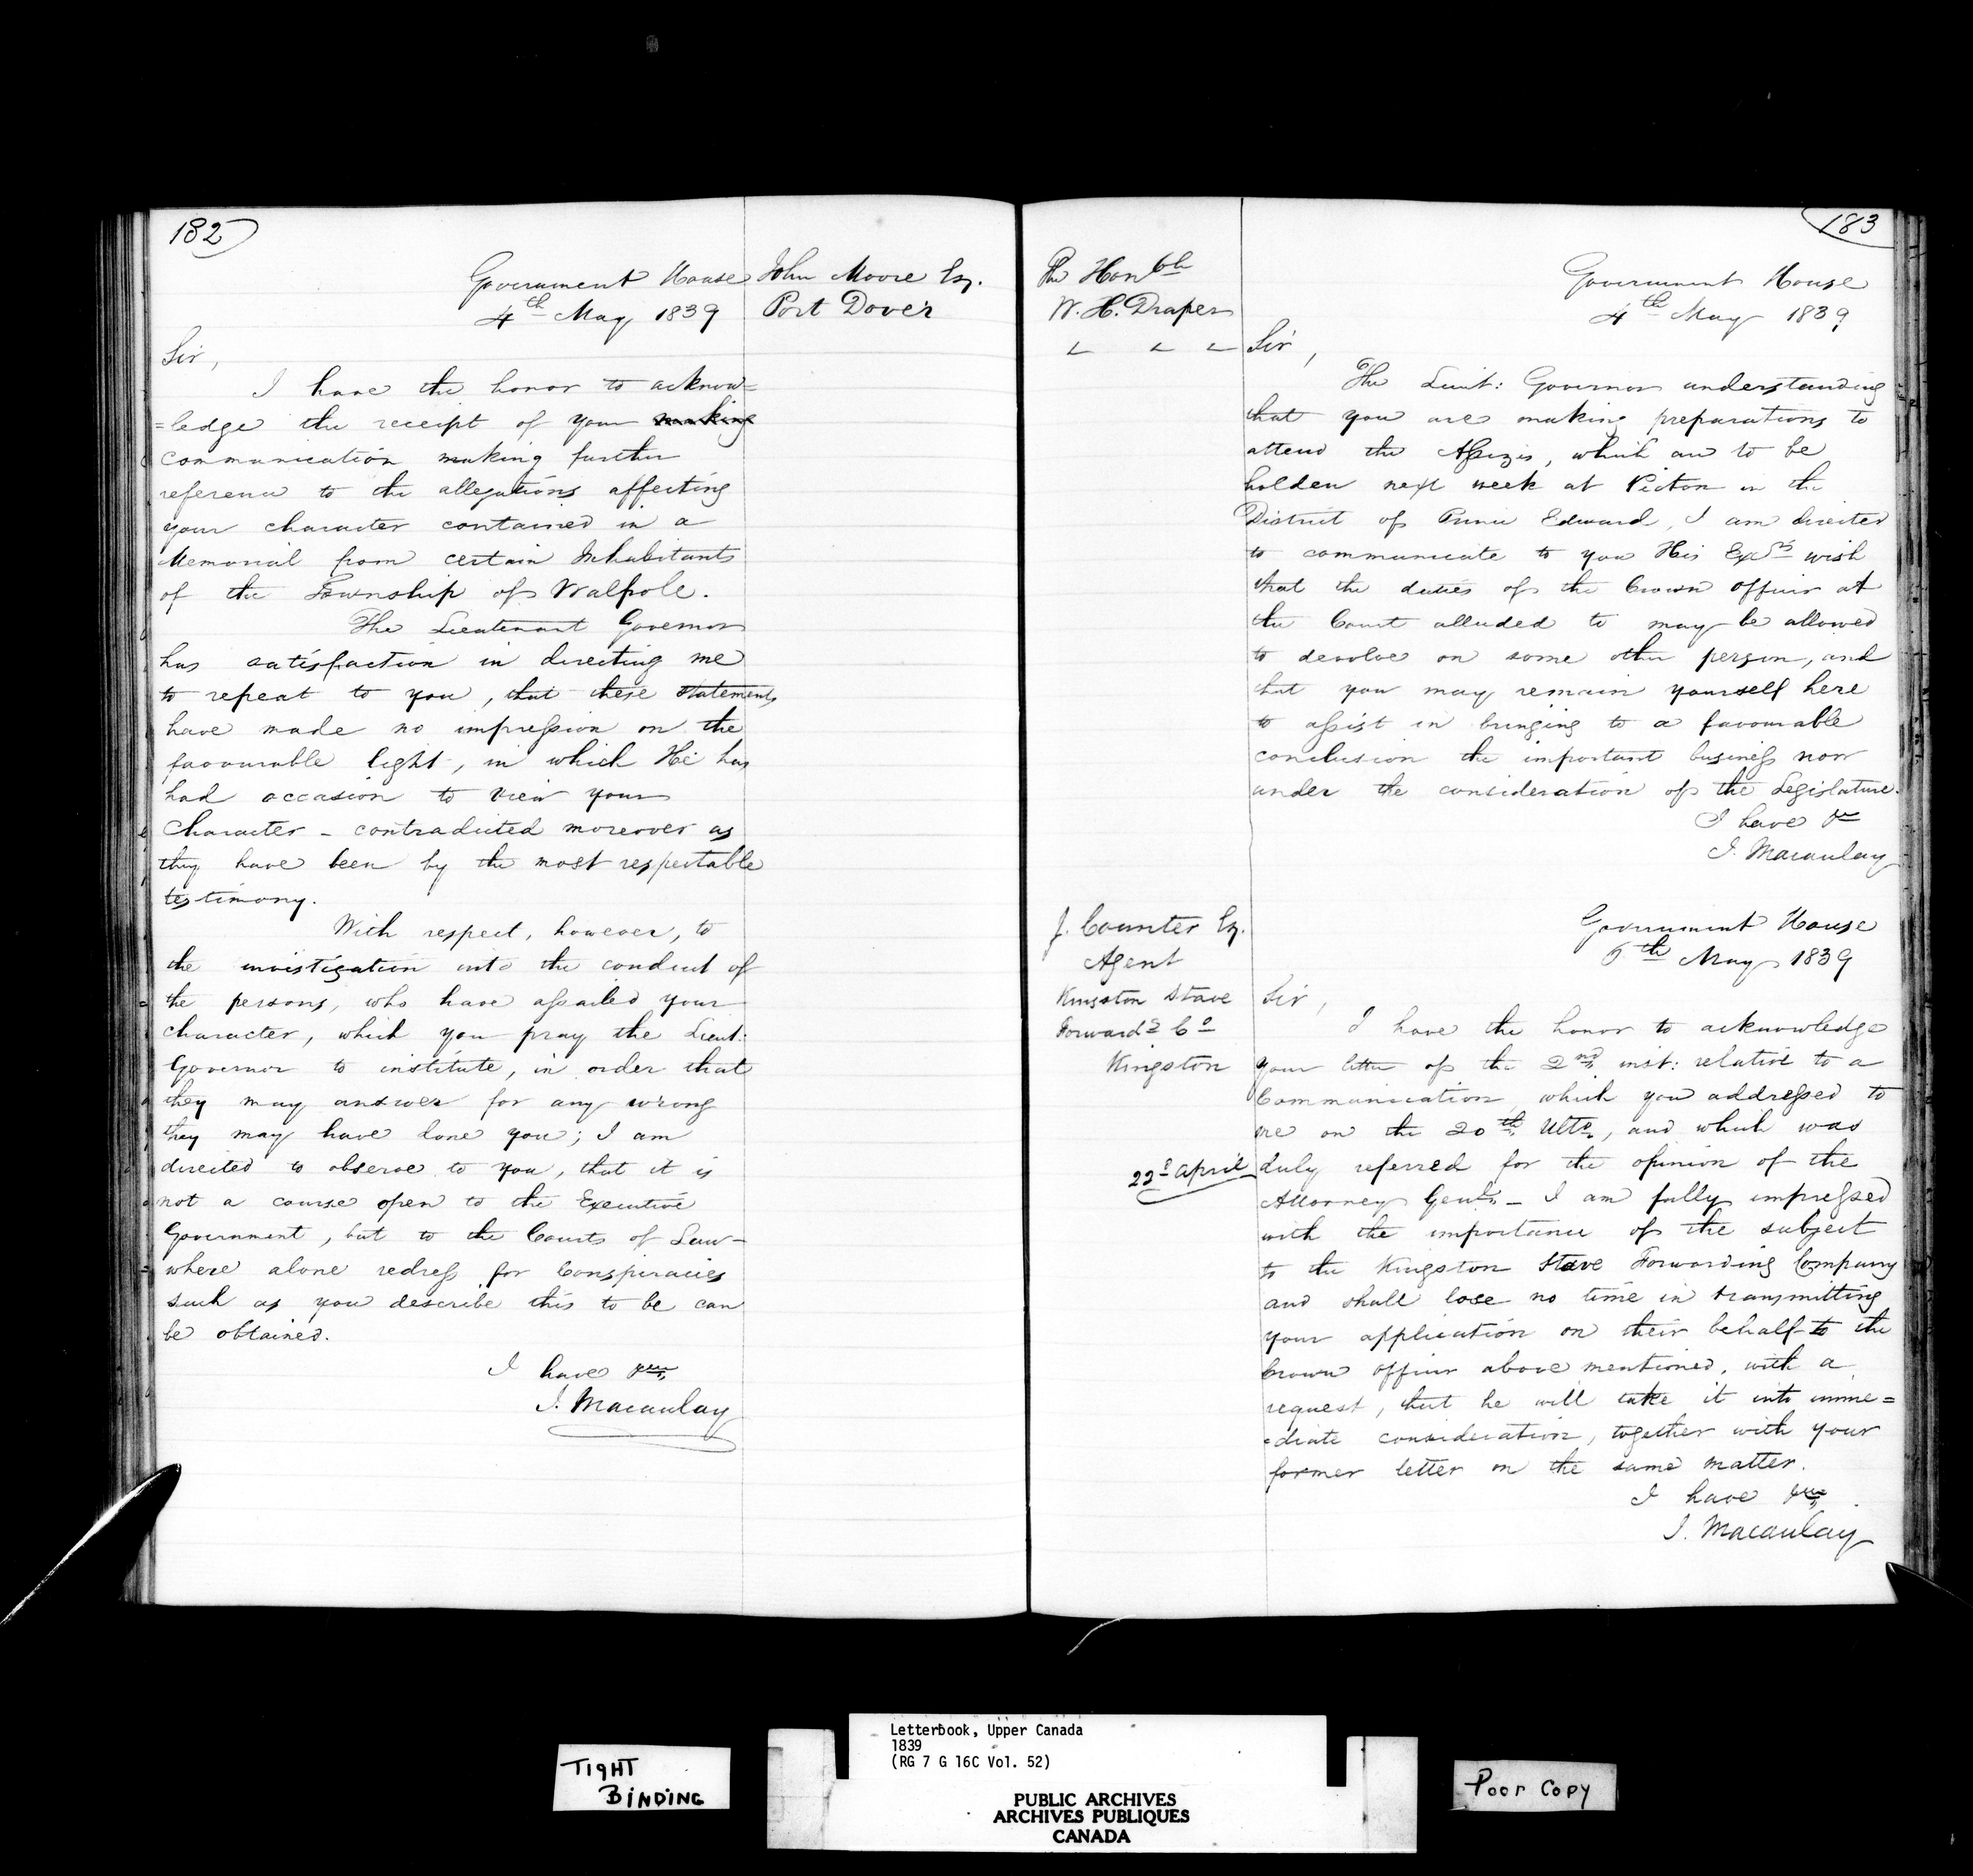 182
Government House
4th May 1839
John Moore Esq.
Port Dover
Sir,
I have the honor to acknow=
=ledge the receipt of your making
communication making further
reference to the allegations affecting
your character contained in a
Memorial from certain Inhabitants
of the Township of Walpole.
The Lieutenant Governor
has satisfaction in directing me
to repeat to you, that these statements
have made no impression on the
favourable light, in which He has
had occasion to view your
Character - contradicted moreover as
they have been by the most respectable
testimony.
With respect, however, to
the investigation into the conduct of
the persons, who have assailed your
character, which you pray the Lieut:
Governor to institute, in order that
they may answer for any wrong
they may have done you; I am
directed to observe to you, that it is
not a course open to the Executive
Government, but to the Courts of Law -
where alone redress for Conspiracies
such as you describe this to be can
be obtained.
I have &c
J. Macaulay
183
The Honble
W. H. Draper
Government House
4th May 1839
Sir,
The Lieut: Governor understanding
that you are making preparations to
attend the Assizes, which are to be
holden next week at Picton in the
District of Prince Edward, I am directed
to communicate to you His Exys wish
that the duties of the Crown Officer at
the Court alluded to may be allowed
to devolve on some other person, and
that you may remain yourself here
to assist in bringing to a favourable
conclusion the important business now
under the consideration of the Legislature.
I have &c
J. Macaulay
J. Counter Esq.
Agent
Kingston Stave
Forwardg Co
Kingston
Government House
6th May 1839
Sir,
I have the honor to acknowledge
your letter of the 2nd inst: relative to a
Communication which you addressed to
me on the 20th Ulto, and which was
22d April
duly referred for the opinion of the
Attorney Genl. - I am fully impressed
with the importance of the subject
to the Kingston Stave Forwarding Company
and shall lose no time in transmitting
your application on their behalf to the
Crown Officer above mentioned, with a
request, that he will take it into imme=
=diate consideration, together with your
former letter on the same matter.
I have &c
J. Macaulay
TIGHT
BINDING
Letterbook, Upper Canada
1839
(RG 7 G 16C Vol. 52)
PUBLIC ARCHIVES
ARCHIVES PUBLIQUES
CANADA
Poor Copy